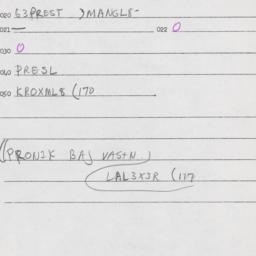 020 63PREST )MANGL8-
021 — 022 0
030 0
040 PRESL
050 KROXML8 (170
(PRONIK BAJ VASTN)
LAL3XJR (117